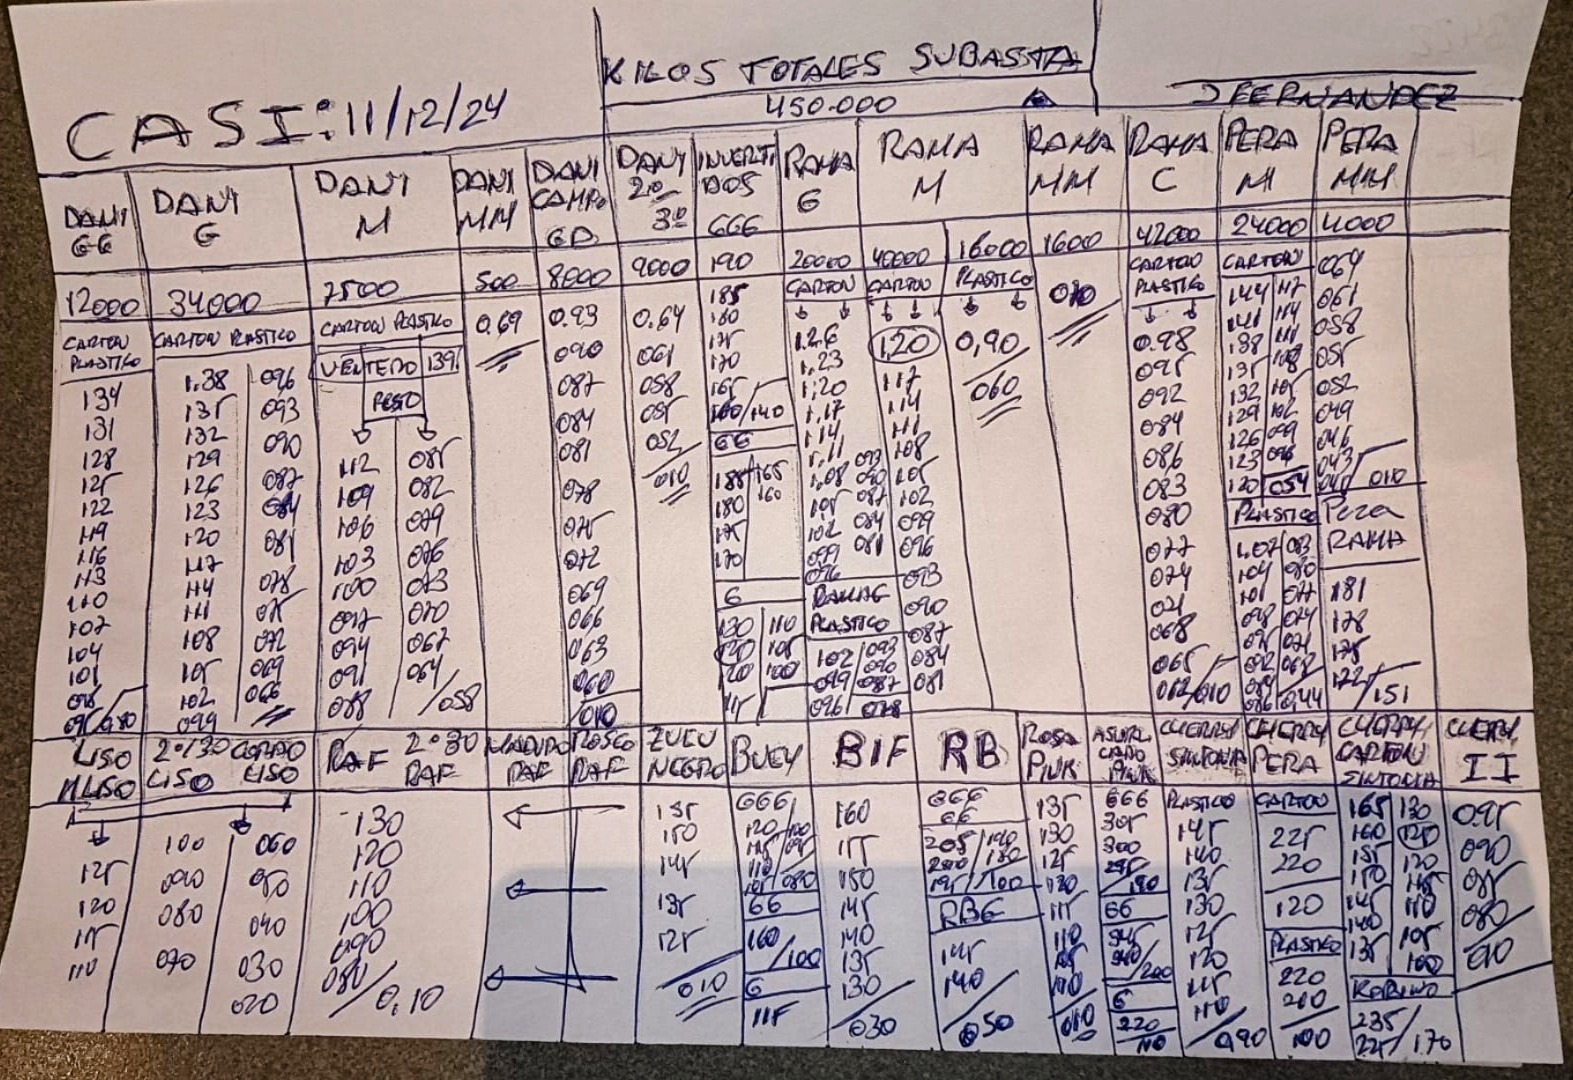 KILOS TOTALES SUBASTA
450.000
J FERNANDEZ
CASI: 11/12/24
DANI GG
DANI G
DANI M
DANI MM
DANI CAMPO GD
DANI 2º 3º
INVERTIDOS
RAMA G
RAMA M
RAMA MM
RAMA C
PERA M
PERA MM
12000
34000
7500
500
8000
9000
20000
40000
16000
1600
42000
24000
4000
CARTON PLASTICO
134
131
128
125
122
119
116
113
110
107
104
101
098
095/080
CARTON
1.38
135
132
129
126
123
120
117
114
111
108
105
102
099
PLASTICO
096
093
090
087
084
081
078
075
072
069
066
CARTON PLASTICO
VENTERO 139
RESTO
112
109
106
103
100
097
094
091
088
085
082
079
076
073
070
067
064
/058
0.69
0.93
090
087
084
081
078
075
072
069
066
063
060
/010
0.64
061
058
055
052
/010
666
190
185
180
175
170
165
160/140
GG
185
180
175
170
165
160
G
130
120
115
110
105
100
CARTON
1.26
1.23
1.20
1.17
1.14
1.11
1.08
105
102
099
096
093
090
087
084
081
RAMA G
PLASTICO
102/093
099/090
096
087
078
CARTON
1,20
117
114
111
108
105
102
099
096
093
090
087
084
081
PLASTICO
0,90
060
010
CARTON
PLASTICO
0.98
095
092
084
086
083
080
077
074
071
068
065
062/010
CARTON
144 117
141 114
138 111
135 108
132 105
129 102
126 099
123 096
120 054
PLASTICO
1.07 083
104 080
101 077
098 074
095 071
092 068
044
064
061
058
055
052
049
046
043
/010
Pera
RAMA
181
178
175
172/151
LISO
M LISO
125
120
115
110
2º/3º LISO
100
090
080
070
CORDO LISO
060
050
040
030
020
RAF
2º 3º RAF
130
120
110
100
090
080/0.10
MADURO RAF
ROSCO RAF
ZUCU NEGRO
155
150
145
135
125
/010
BUEY
666
120/100
115/095
110
105/080
GG
160/100
G
115
BIF
160
155
150
145
140
135
130
/030
RB
GGG
GG
205/190
200/180
195/100
RBG
145
140
/050
ROSA PINK
135
130
125
120
115
110
105
100
010
PINK
666
305
300
295/190
66
345
340/200
G
220
110
CHERRY SINTONIA
PLASTICO
145
140
135
130
125
120
115
110
/090
CHERRY PERA
CARTON
225
220
120
PLASTICO
220
210
100
CHERRY CARTON SINTONIA
165 130
160 125
155 120
150 115
145 110
140 105
135 100
235
225/170
CHERRY II
095
090
085
080
010